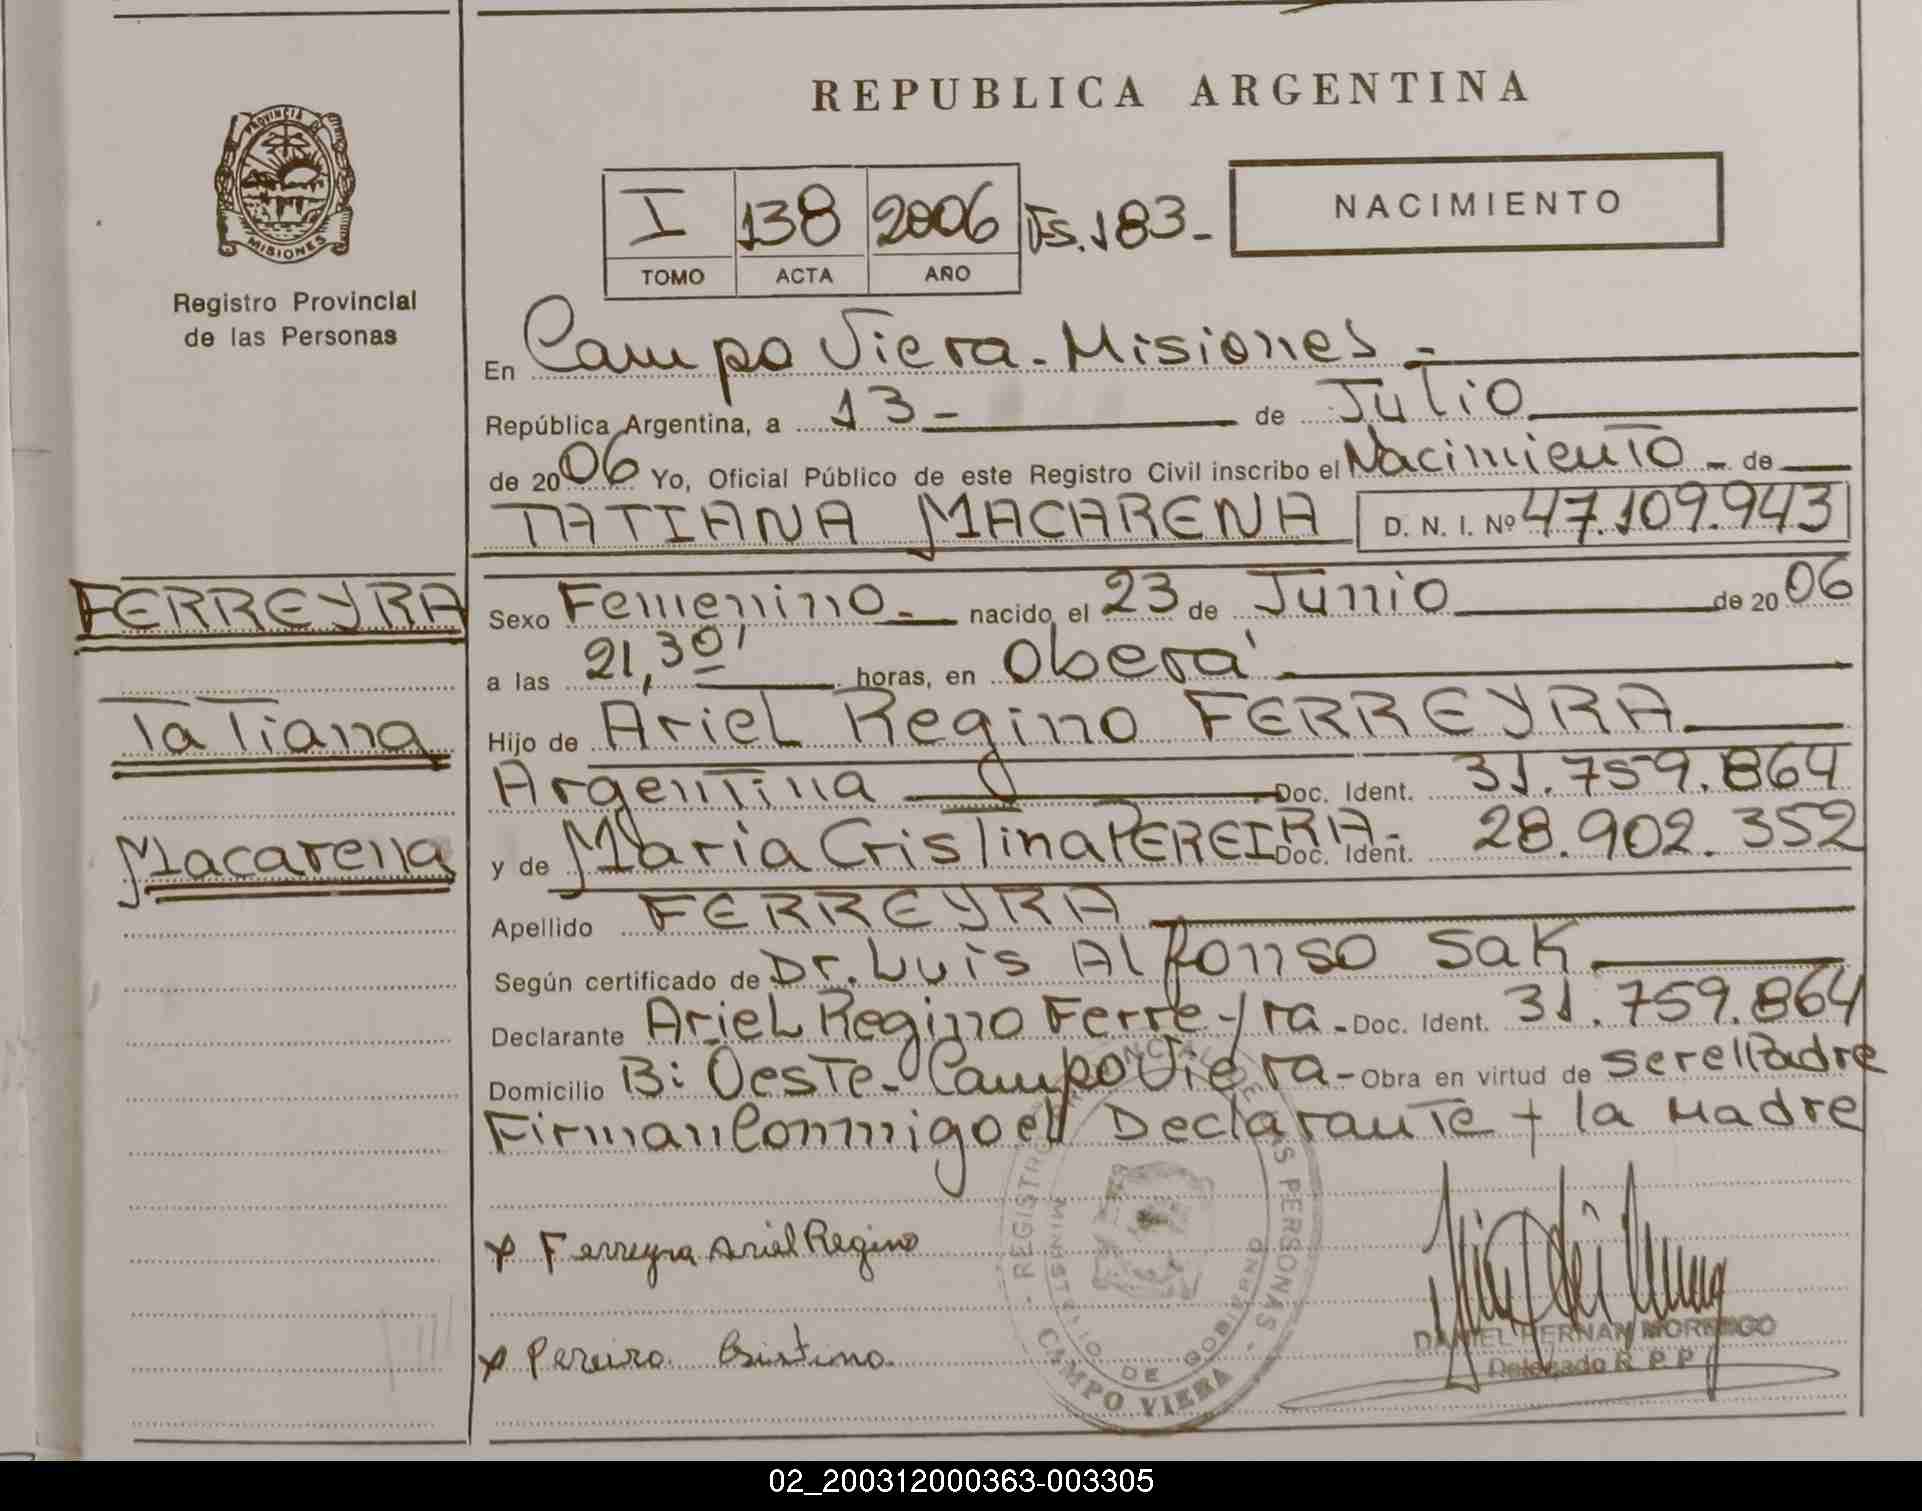 REPUBLICA ARGENTINA
PROVINCIA DE
MISIONES
Registro Provincial
de las Personas
I 138 2006 Fs. 183-
TOMO ACTA AÑO
NACIMIENTO
En Campo Viera - Misiones -
República Argentina, a 13 - de Julio
de 2006 Yo, Oficial Público de este Registro Civil inscribo el Nacimiento - de
TATIANA MACARENA D. N. I. Nº 47.109.943
FERREYRA
Tatiana
Macarena
Sexo Femenino - nacido el 23 de Junio de 2006
a las 21,30' horas, en Oberá
Hijo de Ariel Regino FERREYRA
Argentina Doc. Ident. 31.759.864
y de María Cristina PEREIRA - Doc. Ident. 28.902.352
Apellido FERREYRA
Según certificado de Dr. Luis Alfonso Sak
Declarante Ariel Regino Ferreyra - Doc. Ident. 31.759.864
Domicilio B: Oeste - Campo Viera - Obra en virtud de ser el Padre
Firman Conmigo el Declarante + la Madre
x Ferreyra Ariel Regino
x Pereira Cristina
REGISTRO PROVINCIAL DE LAS PERSONAS - CAMPO VIERA -
MINISTERIO DE GOBIERNO
DANIEL HERNAN
Delegado R. P. P.
02_200312000363-003305